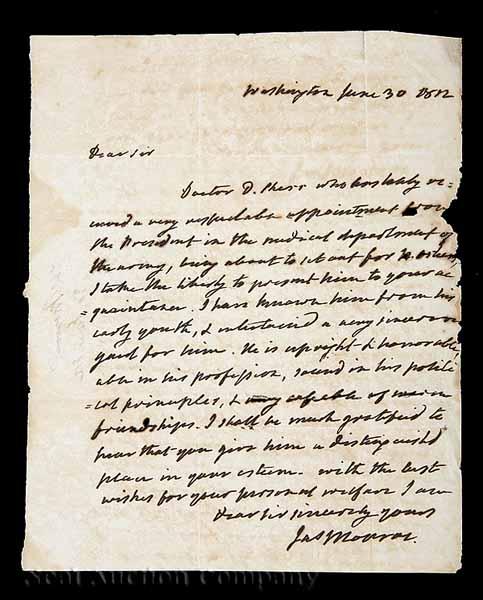 Washington June 30 1812
Dear Sir
Doctor D. who has lately re-
ceived a very respectable appointment from
the President in the medical department of
the army, being about to set out for
I take the liberty to present him to your ac
=quaintance. I have known him from his
early youth, & entertained a very sincere re
gard for him. He is upright & honorable,
able in his profession, sound in his politi
=cal principles, & capable of
friendships. I shall be much gratified to
hear that you give him a distinguish'd
place in your esteem. with the best
wishes for your personal welfare I am
Dear Sir sincerely yours
Jas Monroe.
Neal Auction Company